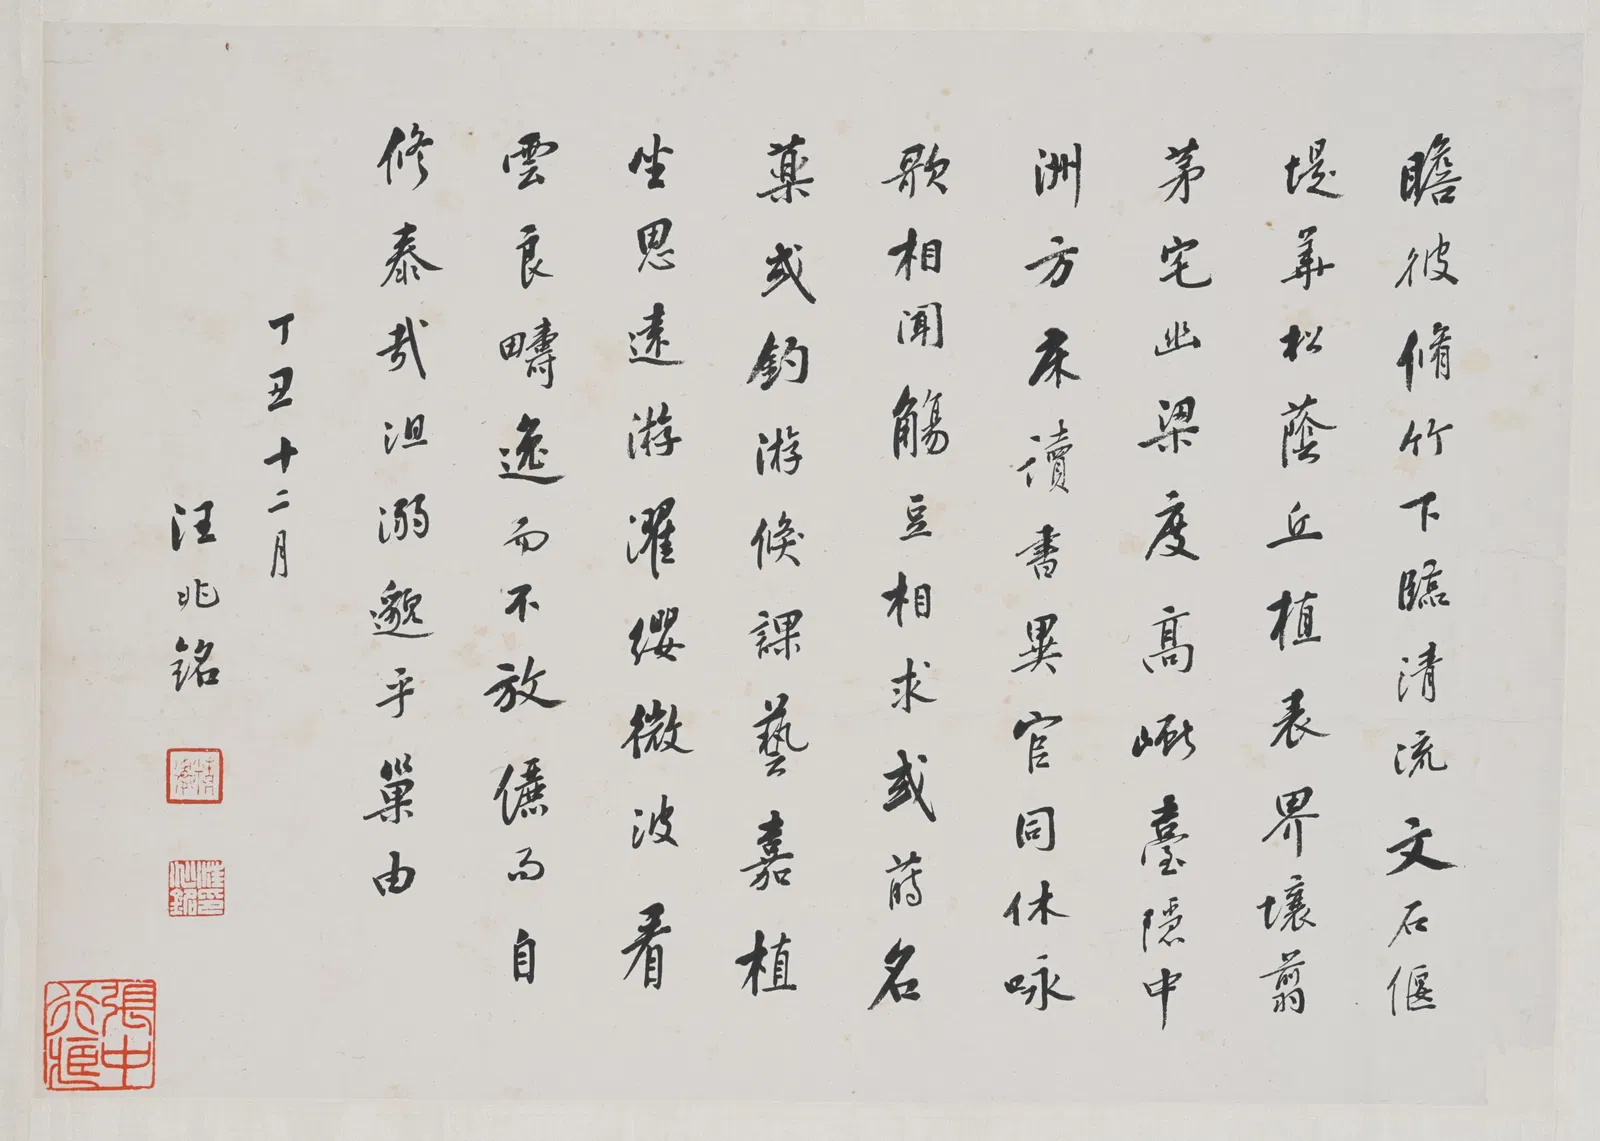 瞻彼脩竹下臨清流文石偃
堤華松蔭丘植表界壤翦
茅宅幽梁度高臺隱中
洲方床讀書異官同休咏
歌相聞觴豆相求或蒔名
藥或釣游倏課藝嘉植
坐思遠游濯纓微波看
雲良疇逸而不放而自
修泰哉沮溺邈乎巢由
丁丑十二月
汪兆銘
精衛
汪印兆銘